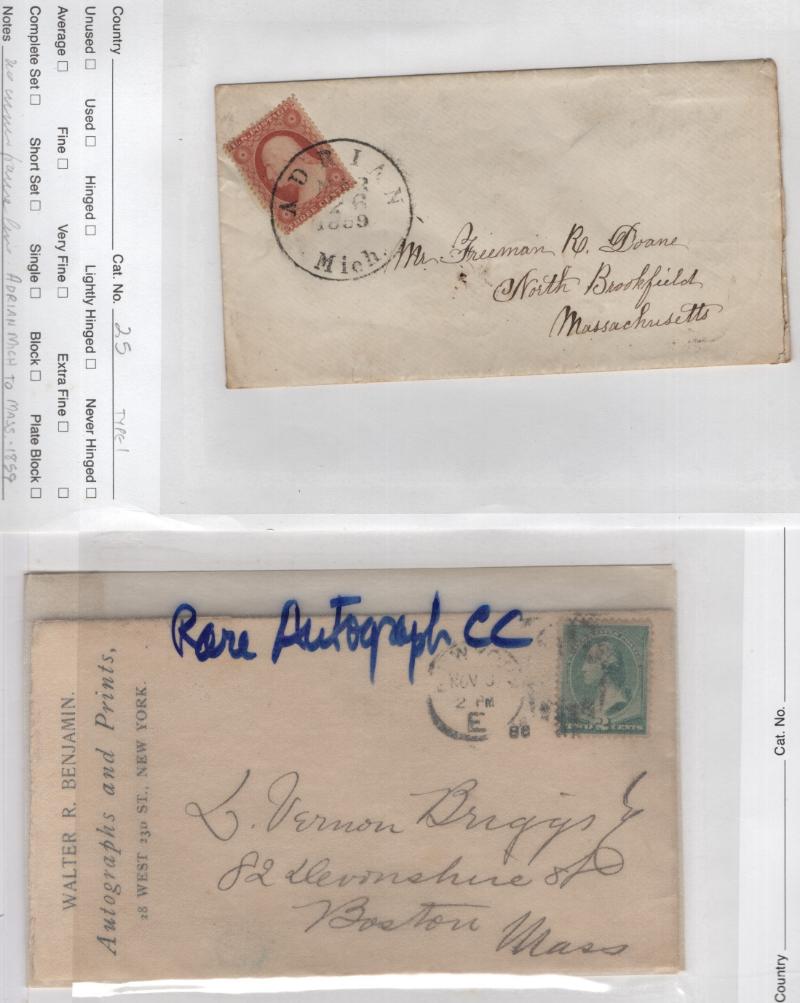 Country Cat. No. 25 TYPE 1
Unused □ Used □ Hinged □ Lightly Hinged □ Never Hinged □
Average □ Fine □ Very Fine □ Extra Fine □ □
Complete Set □ Short Set □ Single □ Block □ Plate Block □
Notes ADRIAN MICH TO MASS. - 1859
ADRIAN
1859
Mich.
Mr. Freeman R. Doane
North Brookfield
Massachusetts
Rare Autograph CC
WALTER R. BENJAMIN.
Autographs and Prints,
28 WEST 23D ST., NEW YORK.
NOV
2 PM
E
88
TWO CENTS
L. Vernon Briggs
82 Devonshire St
Boston
Mass
Country Cat. No.